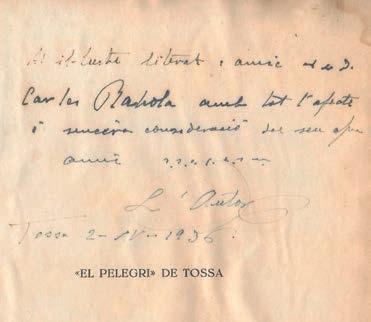 Al il·lustre literat i amic
Carles Rahola amb tot l'afecte
i sincera consideració del seu
amic
L'Autor
Tossa 2-IV-1936
«EL PELEGRI» DE TOSSA